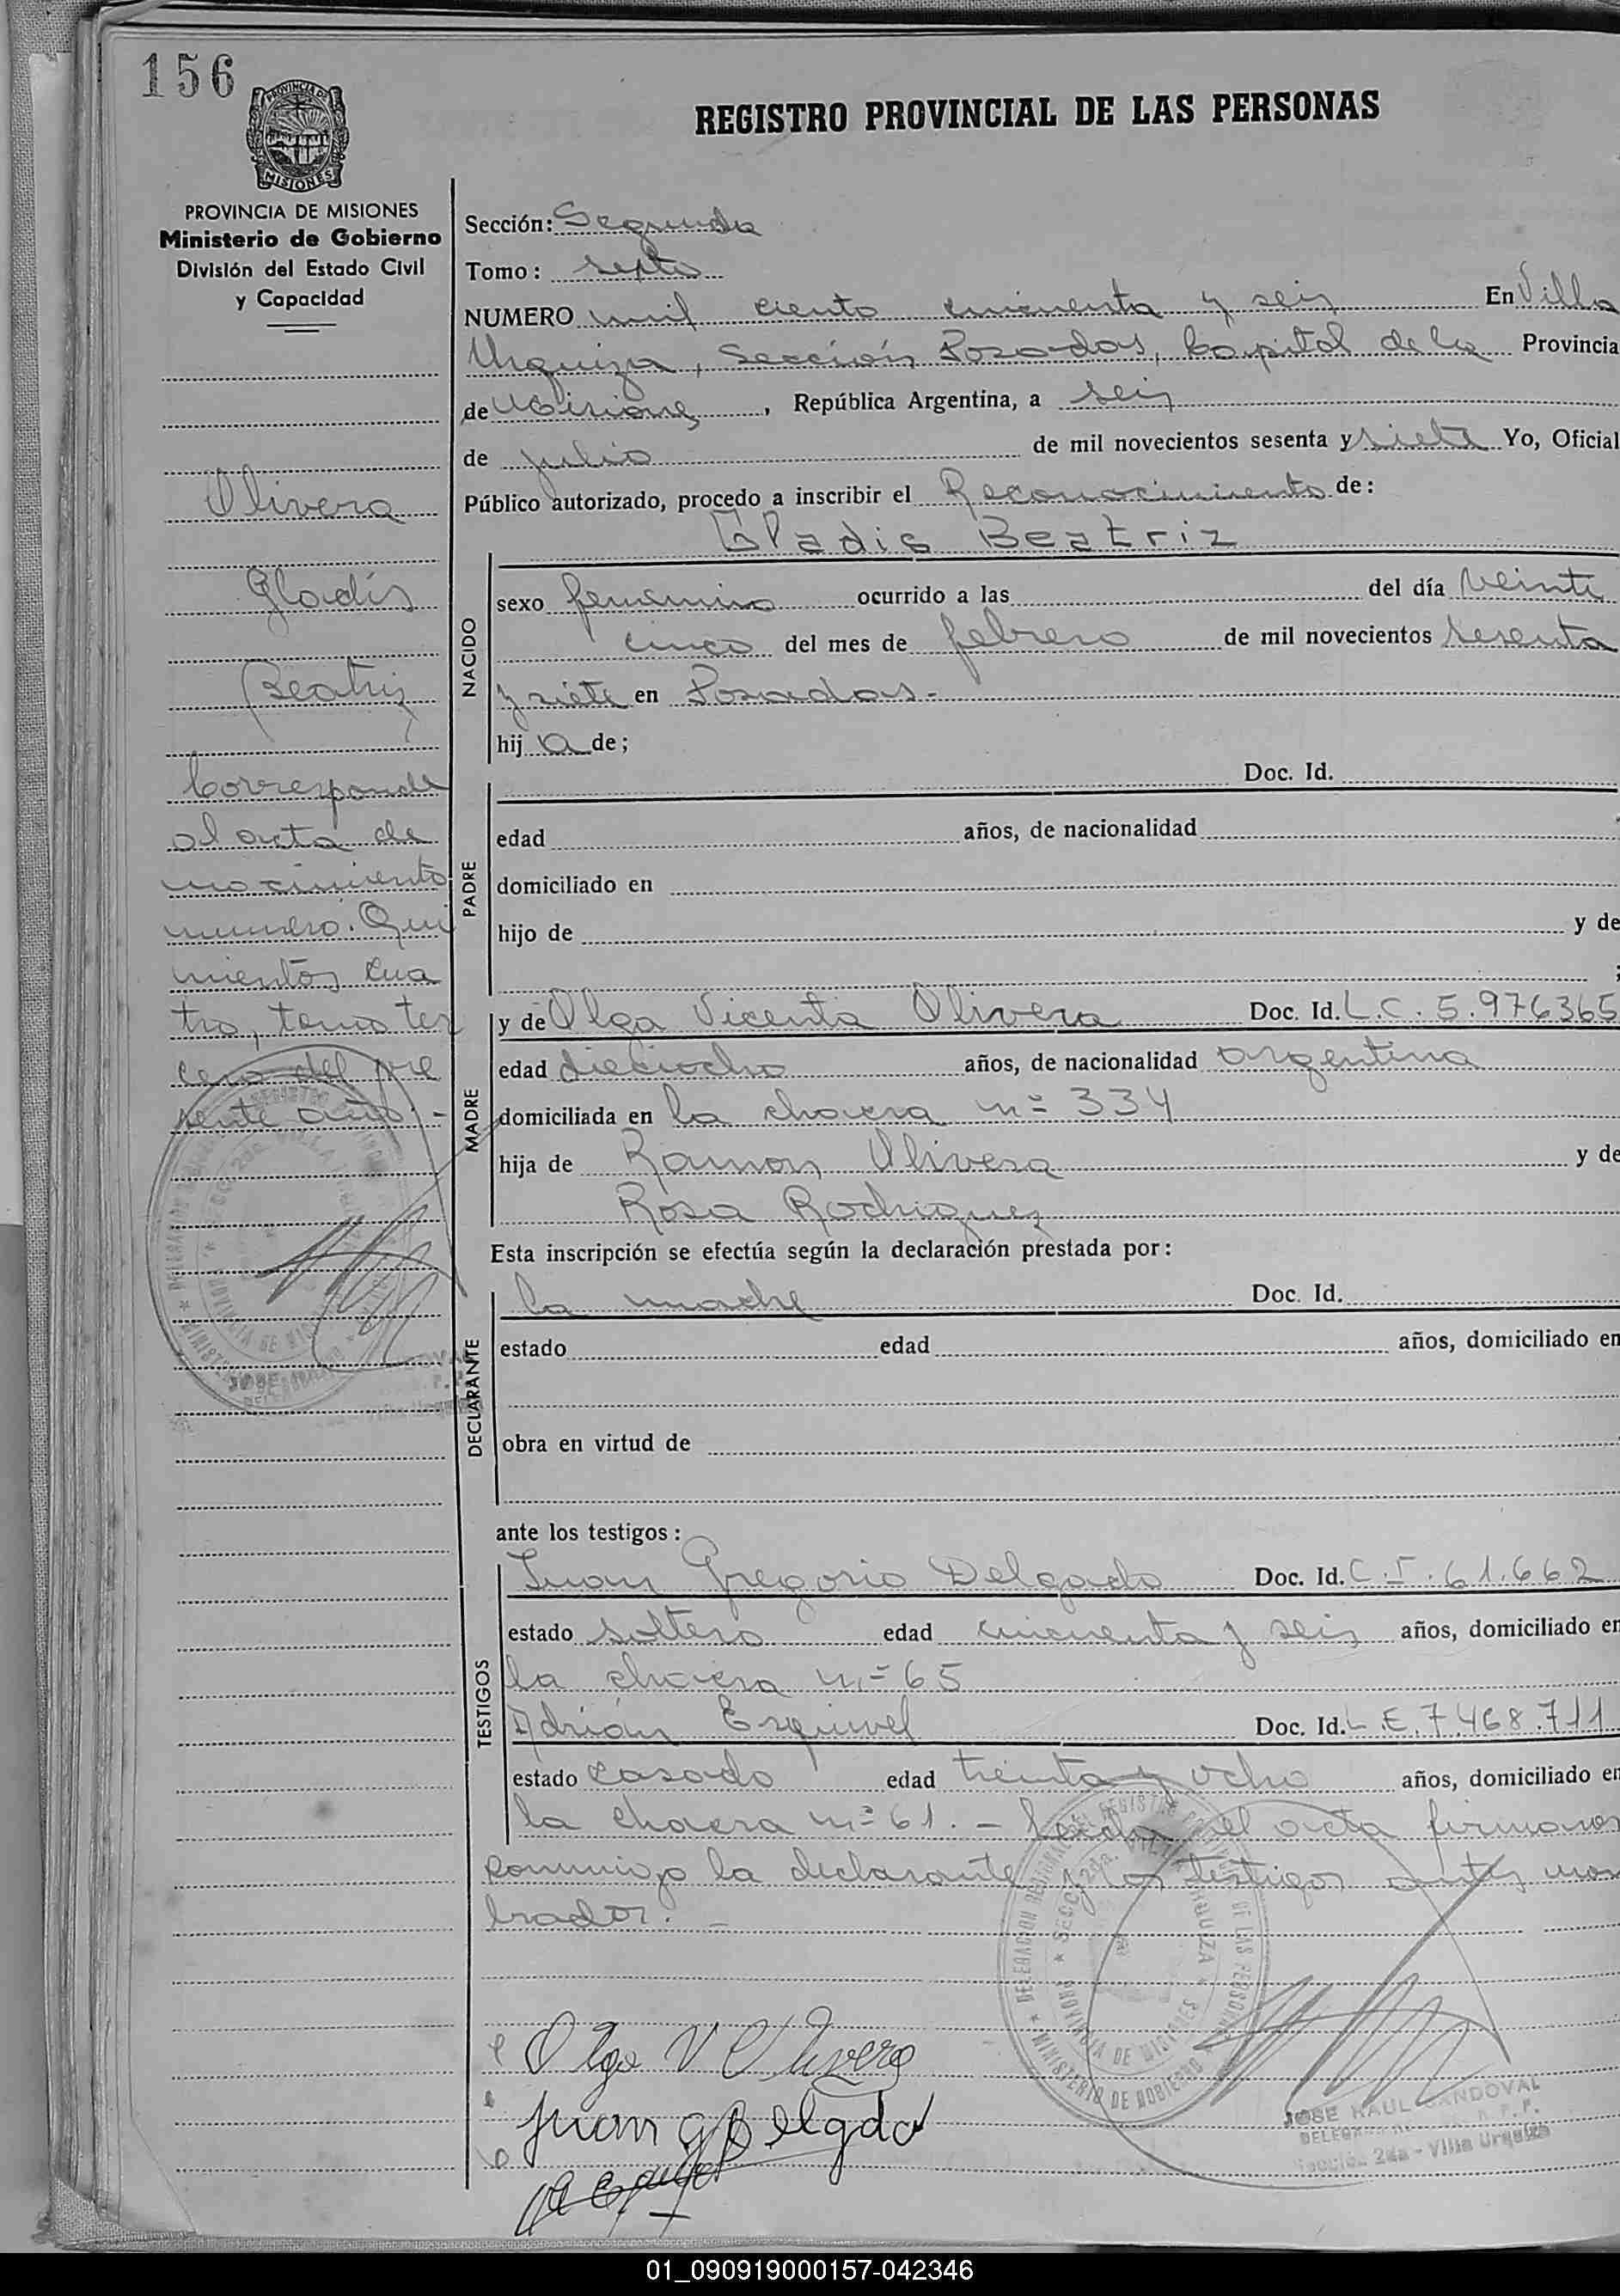 156
PROVINCIA DE
MISIONES
REGISTRO PROVINCIAL DE LAS PERSONAS
PROVINCIA DE MISIONES
Ministerio de Gobierno
División del Estado Civil
y Capacidad
Olivera
Gladis
Beatriz
Corresponde
al acta de
nacimiento
numero. Qui
nientos cua
tro, tomo ter
cero del pre
sente año.-
Sección: Segunda
Tomo: septo
NUMERO mil ciento cincuenta y seis En Villa
Urquiza, Sección Posadas, Capital de la Provincia
de Misiones, República Argentina, a seis
de julio de mil novecientos sesenta y siete Yo, Oficial
Público autorizado, procedo a inscribir el Reconocimiento de:
Gladis Beatriz
NACIDO
sexo femenino ocurrido a las del día veinti
cinco del mes de febrero de mil novecientos sesenta
y siete en Posadas.-
hij a de;
PADRE
Doc. Id.
edad años, de nacionalidad
domiciliado en
hijo de y de
;
MADRE
y de Olga Vicenta Olivera Doc. Id. L.C. 5.976365
edad dieciocho años, de nacionalidad argentina
domiciliada en la chacra nº 334
hija de Ramon Olivera y de
Rosa Rodriguez
Esta inscripción se efectúa según la declaración prestada por:
DECLARANTE
la madre Doc. Id.
estado edad años, domiciliado en
obra en virtud de
ante los testigos:
TESTIGOS
Juan Gregorio Delgado Doc. Id. C.I. 61.662
estado soltero edad cincuenta y seis años, domiciliado en
la chacra nº 65
Adrián Esquivel Doc. Id. L.E. 7468.711
estado casado edad treinta y ocho años, domiciliado en
la chacra nº 61.- Leida el acta firman
conmigo la declarante y los testigos antes nom
brados.-
Olga V Olivera
Juan G Delgado
JOSE RAUL SANDOVAL
Sección 2da - Villa Urquiza
01_090919000157-042346